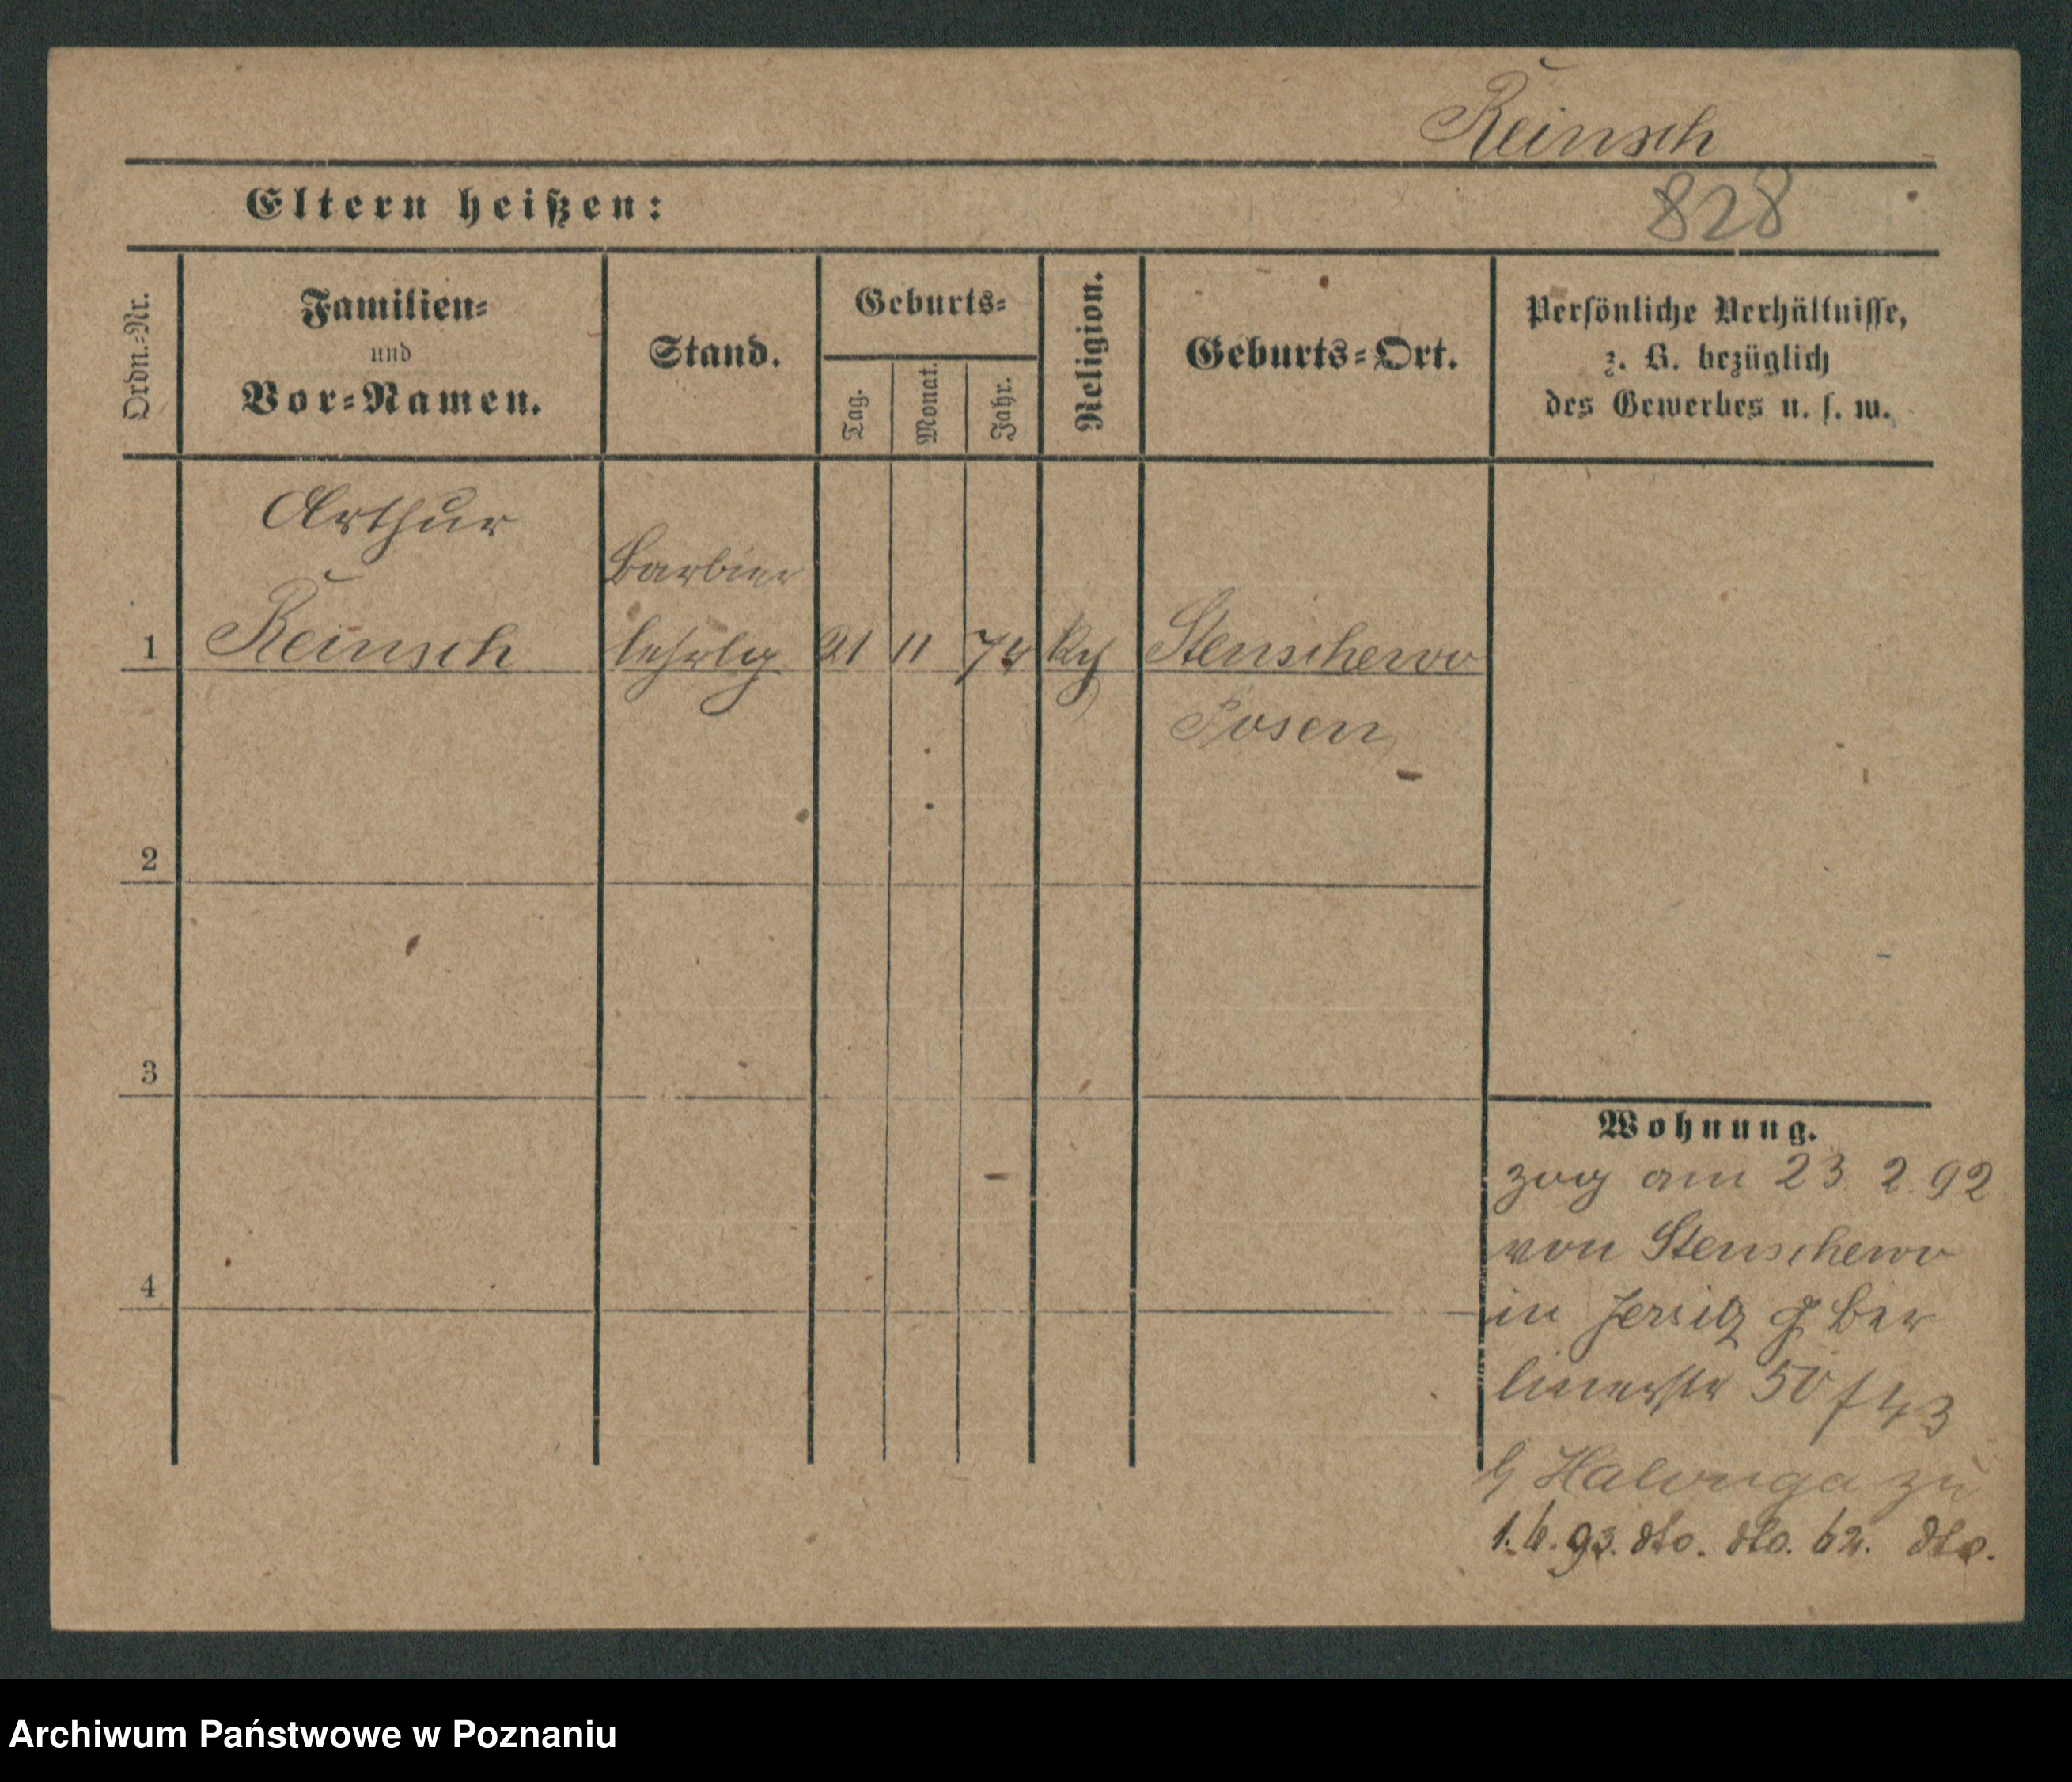 Reinsch
Eltern heißen:
828
Ordn.-Nr.
Familien-
und
Vor-Namen.
Stand.
Geburts-
Tag.
Monat.
Jahr.
Religion.
Geburts-Ort.
Persönliche Verhältnisse,
z. B. bezüglich
des Gewerbes u. s. w.
Arthur
Barbier
1 Reinsch lehrlg 21 11 74 Stenschewo
Posen
2
3
4
Wohnung.
zog am 23. 2. 92
von Stenschewo
in Jersitz Ber
linerstr 50
zu
1. 6. 93. dto. dto. 62. dto.
Archiwum Państwowe w Poznaniu